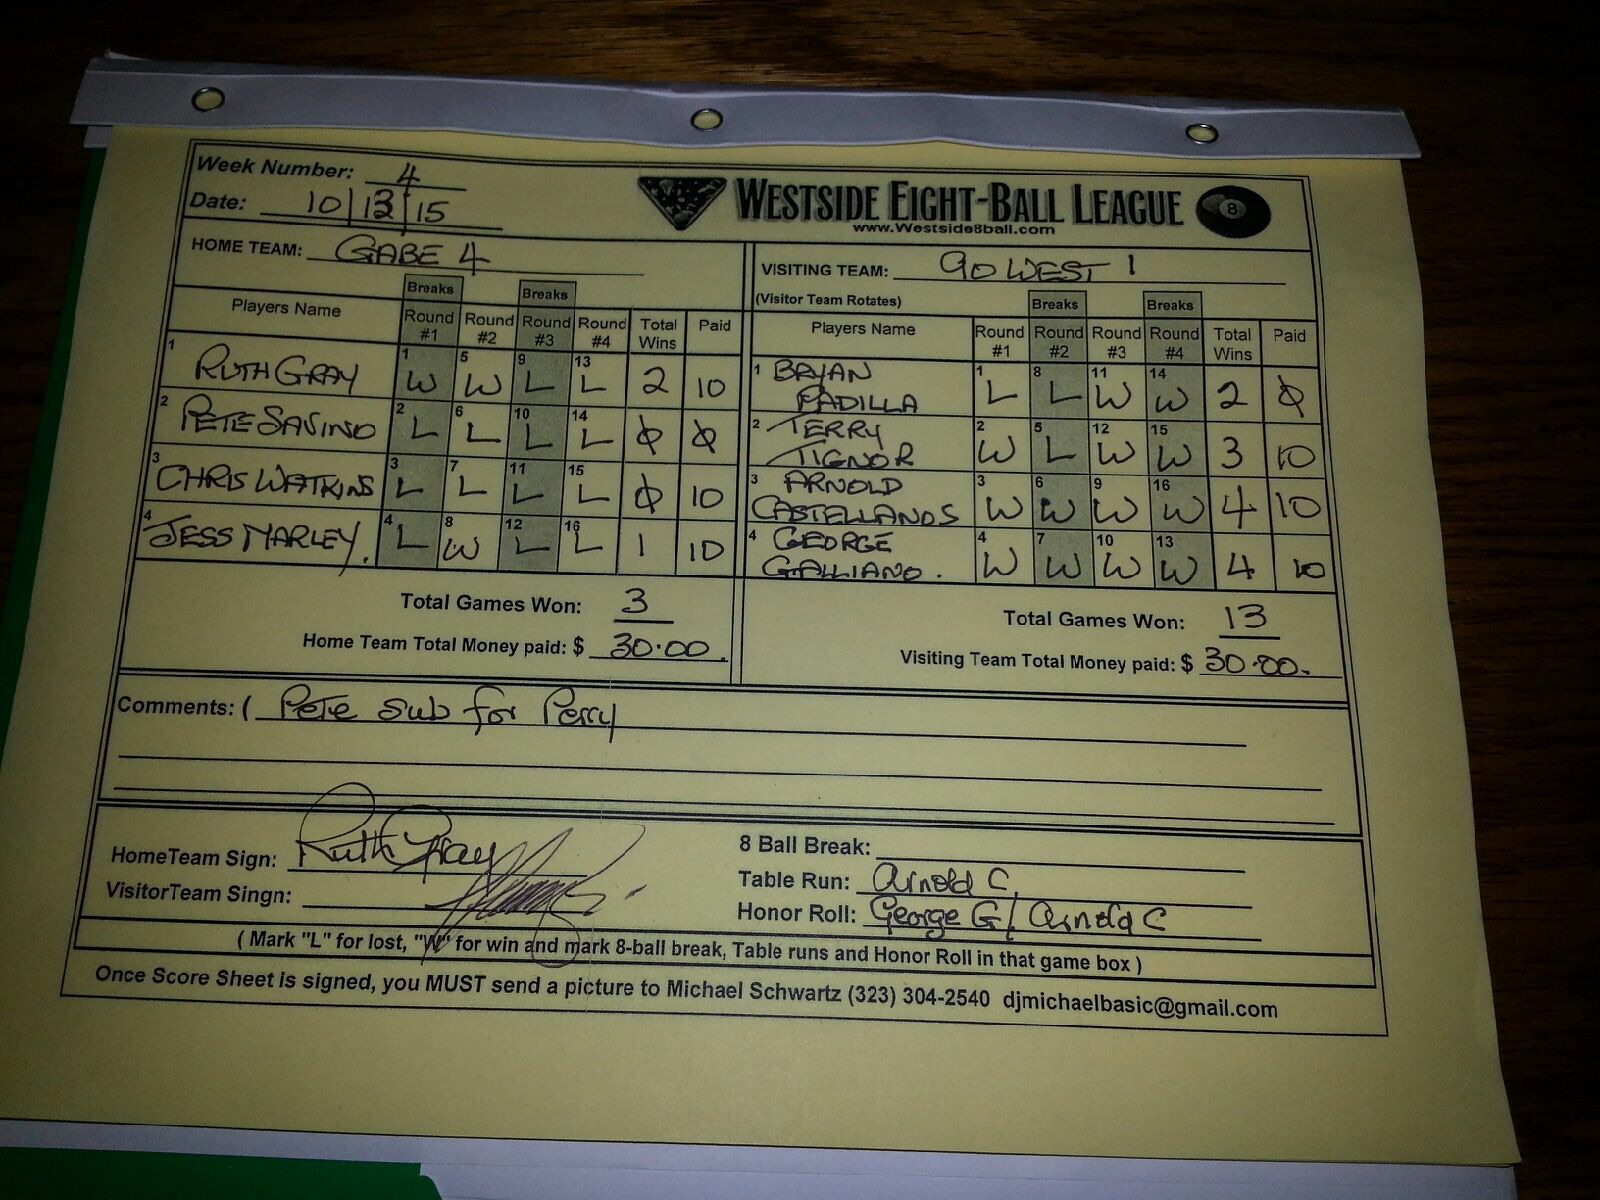 Week Number: 4
Date: 10/13/15
WESTSIDE EIGHT-BALL LEAGUE 8
www.Westside8ball.com
HOME TEAM: GABE 4
VISITING TEAM: 90 WEST 1
(Visitor Team Rotates)
Breaks Breaks Breaks Breaks
Players Name Round #1 Round #2 Round #3 Round #4 Total Wins Paid
Players Name Round #1 Round #2 Round #3 Round #4 Total Wins Paid
1 RUTH GRAY 1 W 5 W 9 L 13 L 2 10
2 PETE SAVINO 2 L 6 L 10 L 14 L 0 0
3 CHRIS WATKINS 3 L 7 L 11 L 15 L 0 10
4 JESS MARLEY. 4 L 8 W 12 L 16 L 1 10
1 BRYAN PADILLA 1 L 8 L 11 W 14 W 2 0
2 TERRY TIGNOR 2 W 5 L 12 W 15 W 3 10
3 ARNOLD CASTELLANOS 3 W 6 W 9 W 16 W 4 10
4 GEORGE GALLIANO. 4 W 7 W 10 W 13 W 4 10
Total Games Won: 3
Home Team Total Money paid: $ 30.00.
Total Games Won: 13
Visiting Team Total Money paid: $ 30.00.
Comments: ( Pete sub for Perry
HomeTeam Sign: Ruth Gray
VisitorTeam Singn:
8 Ball Break:
Table Run: Arnold C.
Honor Roll: George G/ Arnold C
( Mark "L" for lost, "W" for win and mark 8-ball break, Table runs and Honor Roll in that game box )
Once Score Sheet is signed, you MUST send a picture to Michael Schwartz (323) 304-2540 djmichaelbasic@gmail.com